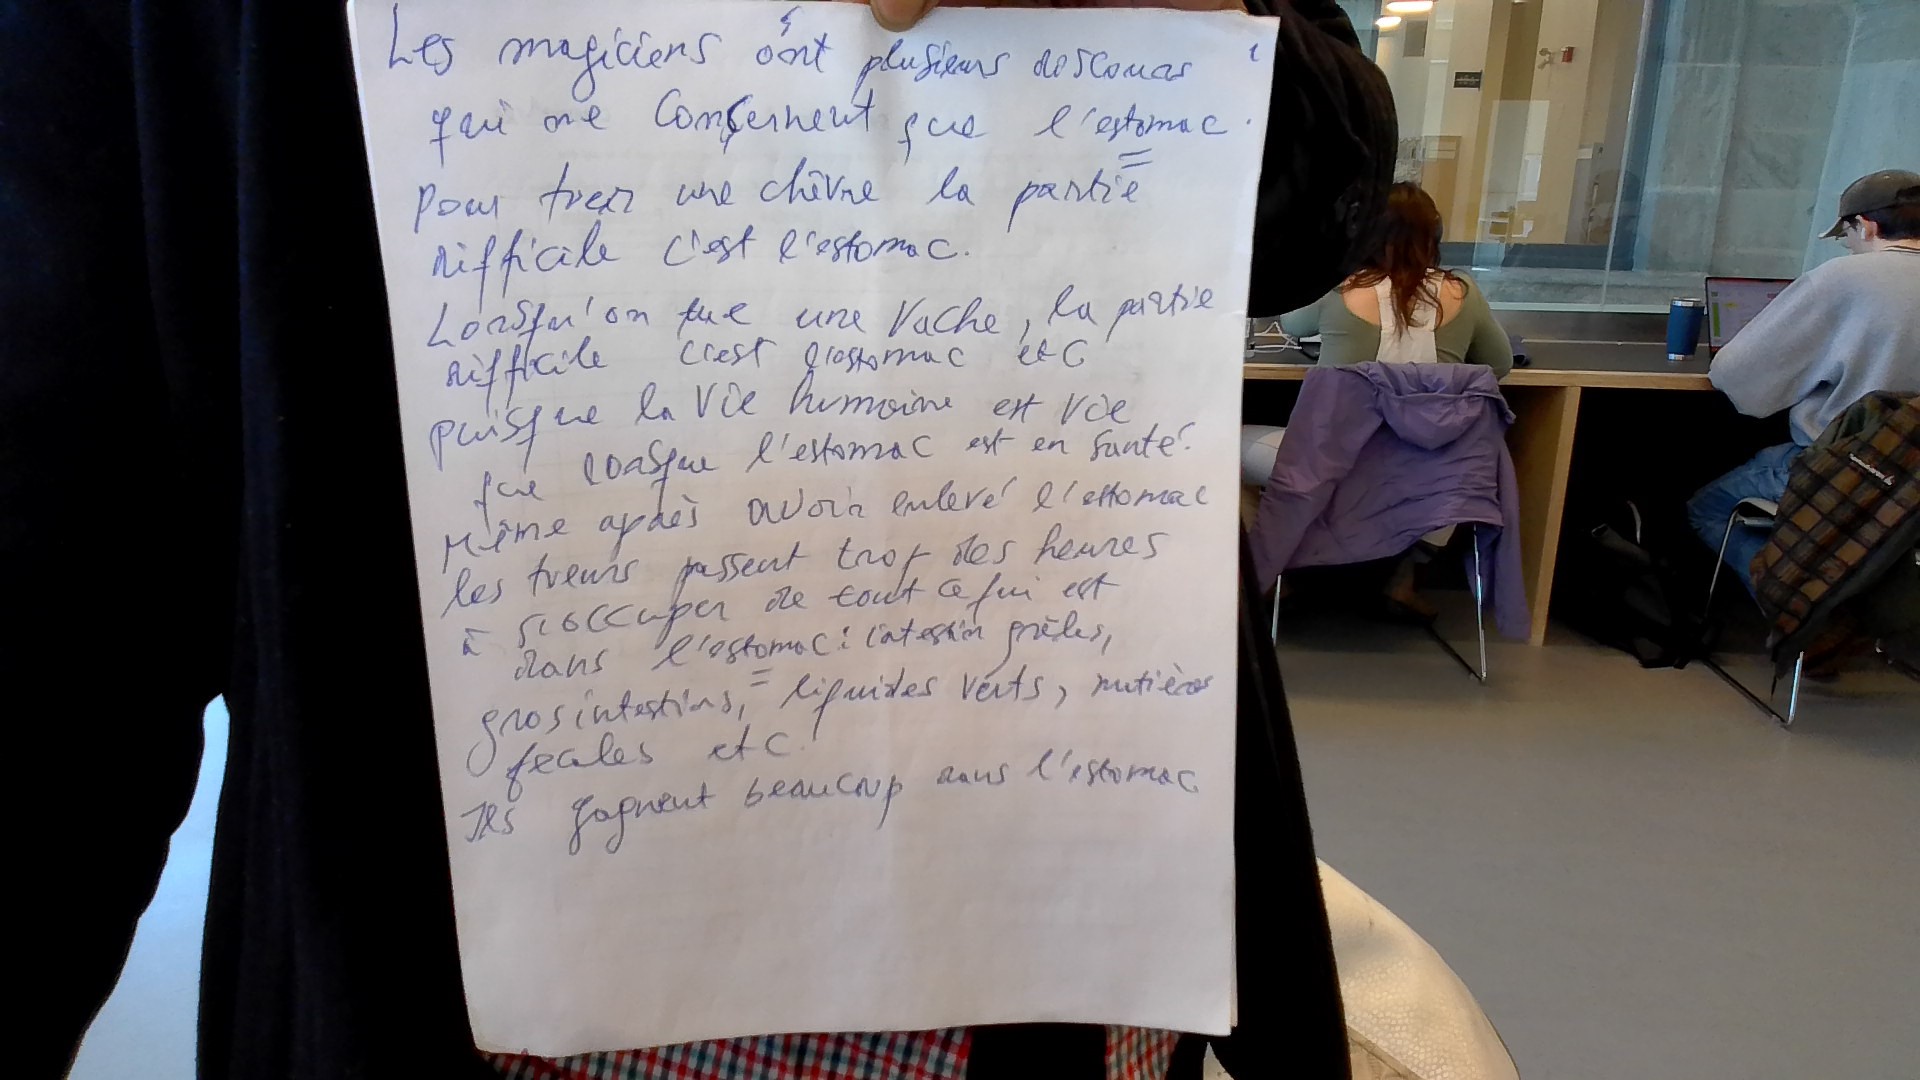 Les magiciens ont plusieurs discours
qui ne concernent que l'estomac.
pour tuer une chèvre la partie
difficile c'est l'estomac.
Lorsqu'on tue une vache, la partie
difficile c'est l'estomac etc
puisque la vie humaine est vie
que lorsque l'estomac est en santé.
Même après avoir enlevé l'estomac
les tueurs passent trop des heures
à s'occuper de tout ce qui est
dans l'estomac : intestin grêles,
gros intestins, liquides verts, matières
fecales etc.
Ils gagnent beaucoup dans l'estomac